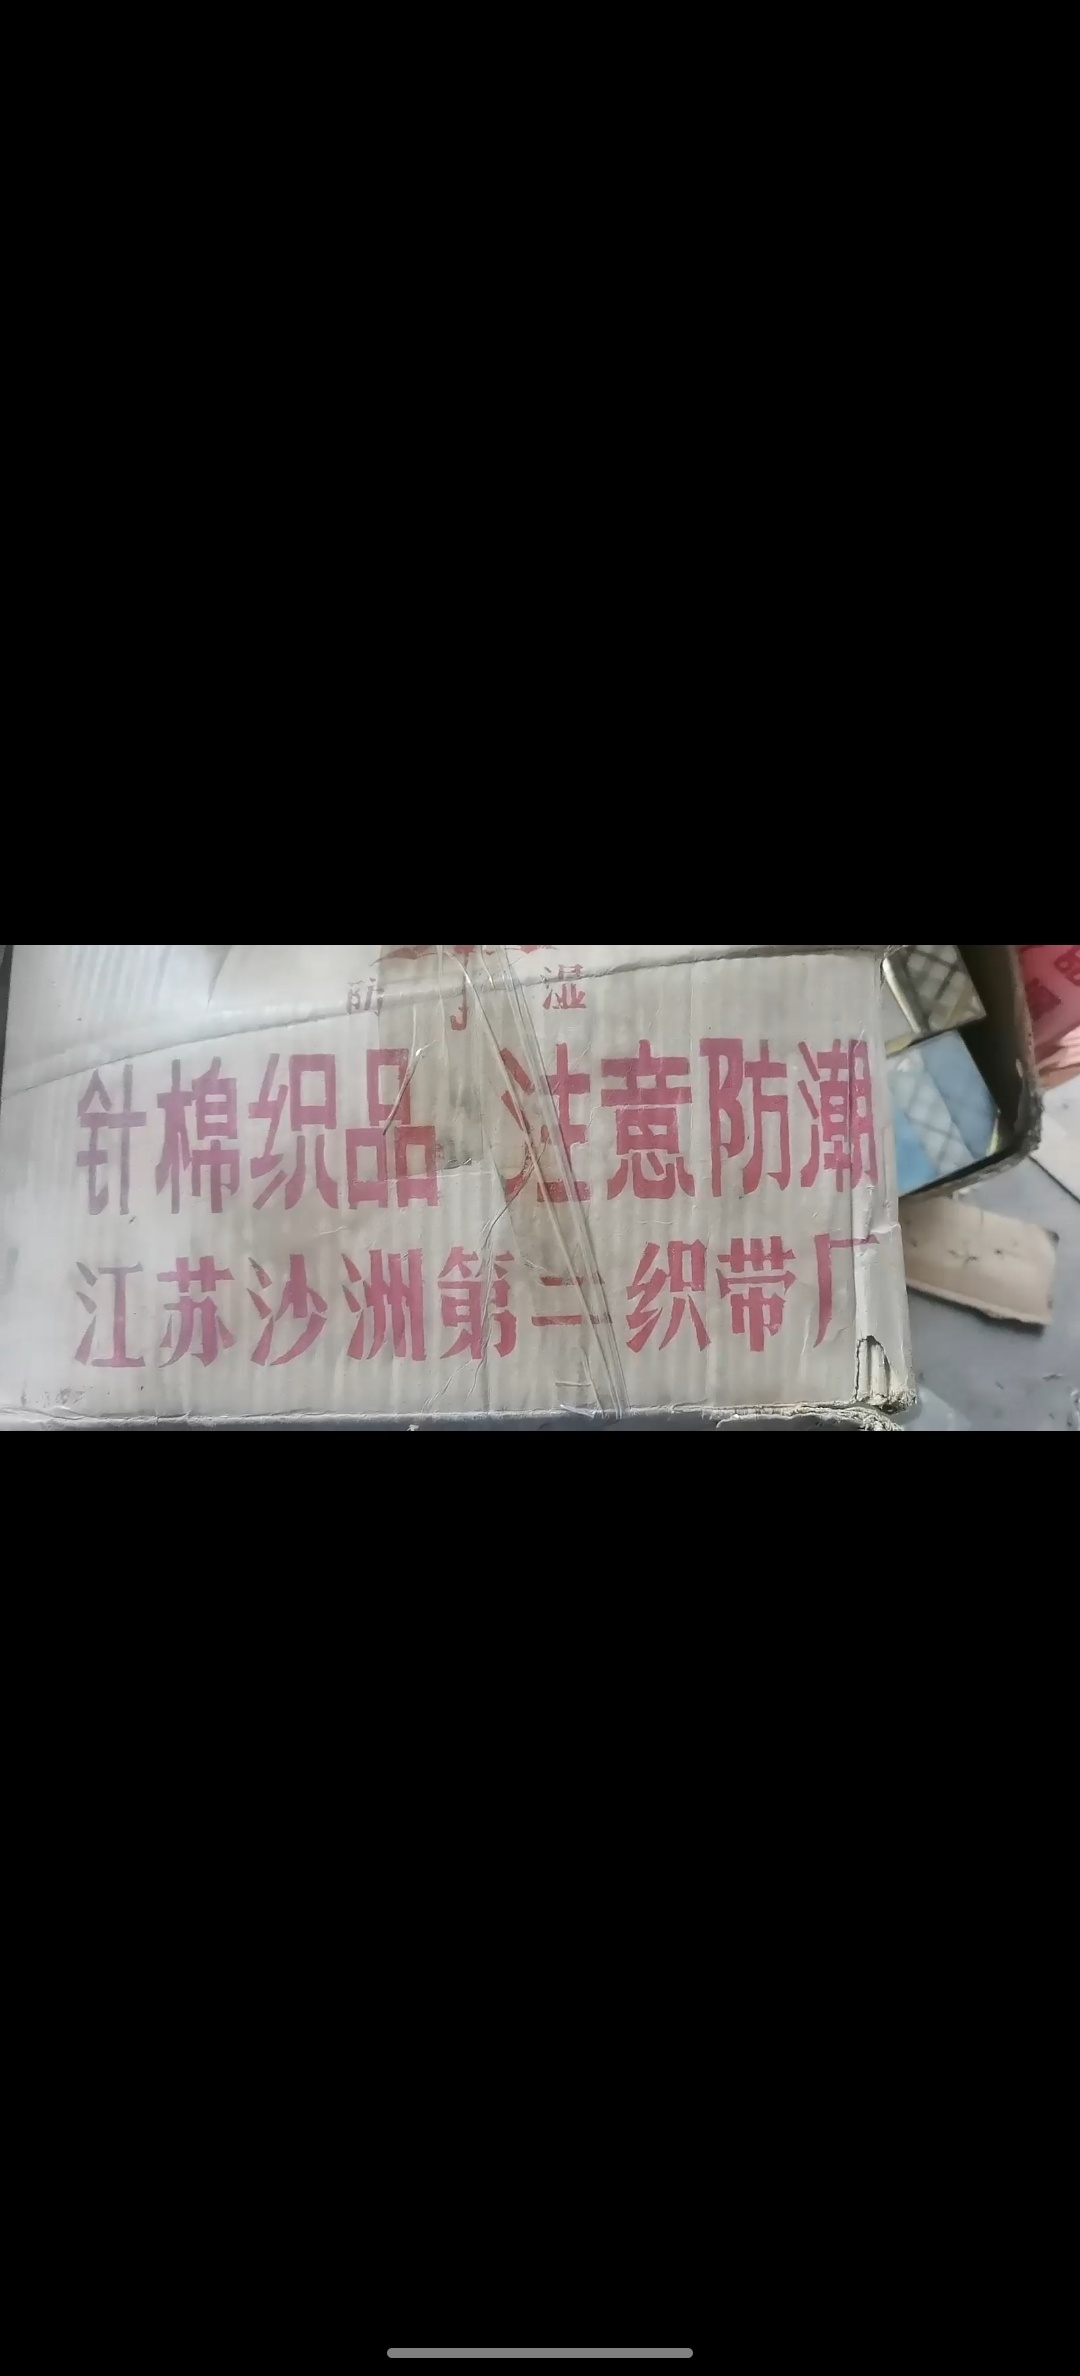 防 湿
针棉织品 注意防潮
江苏沙洲第二织带厂